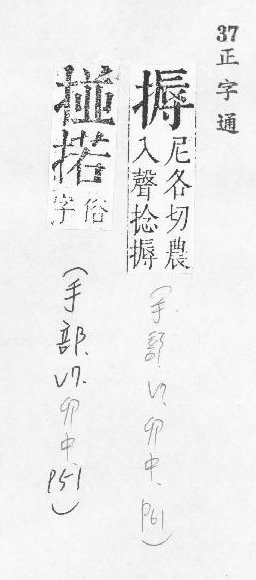 37 正字通
搙 尼各切農入聲捻搙
(手部.V7.卯中.P61)
掽 掿 俗字
(手部.V7.卯中.P51)